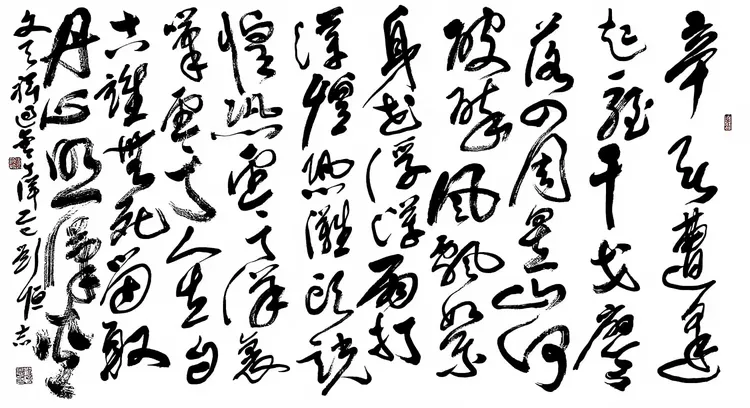 辛苦遭逢
起一經干戈寥
落四周星山河
破碎風飄絮
身世浮沉雨打
萍惶恐灘頭說
惶恐零丁洋裏
嘆零丁人生自
古誰無死留取
丹心照汗青
文天祥過零丁洋乙巳劉恒志